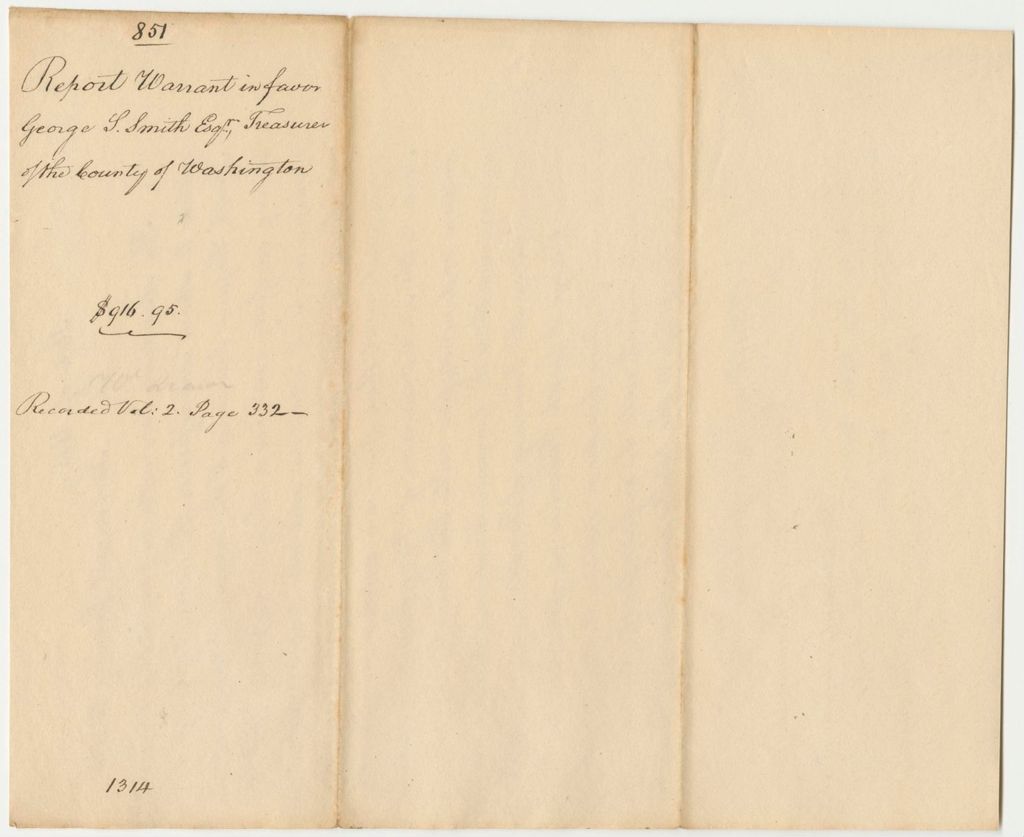 851
Report Warrant in favor
George S. Smith Esqr, Treasurer
of the County of Washington
$916.95.
Recorded Vol: 2. Page 332—
1314